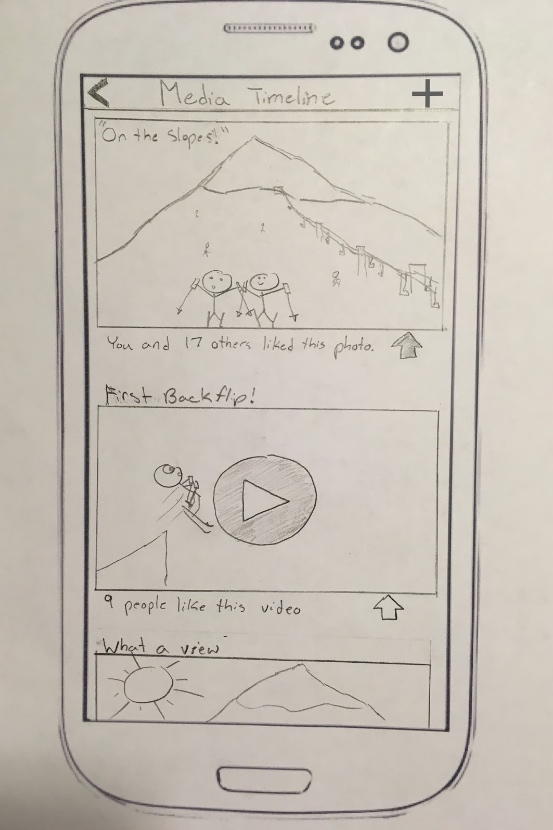 Media Timeline
"On the Slopes!"
You and 17 others liked this photo.
First Backflip!
9 people like this video
What a view